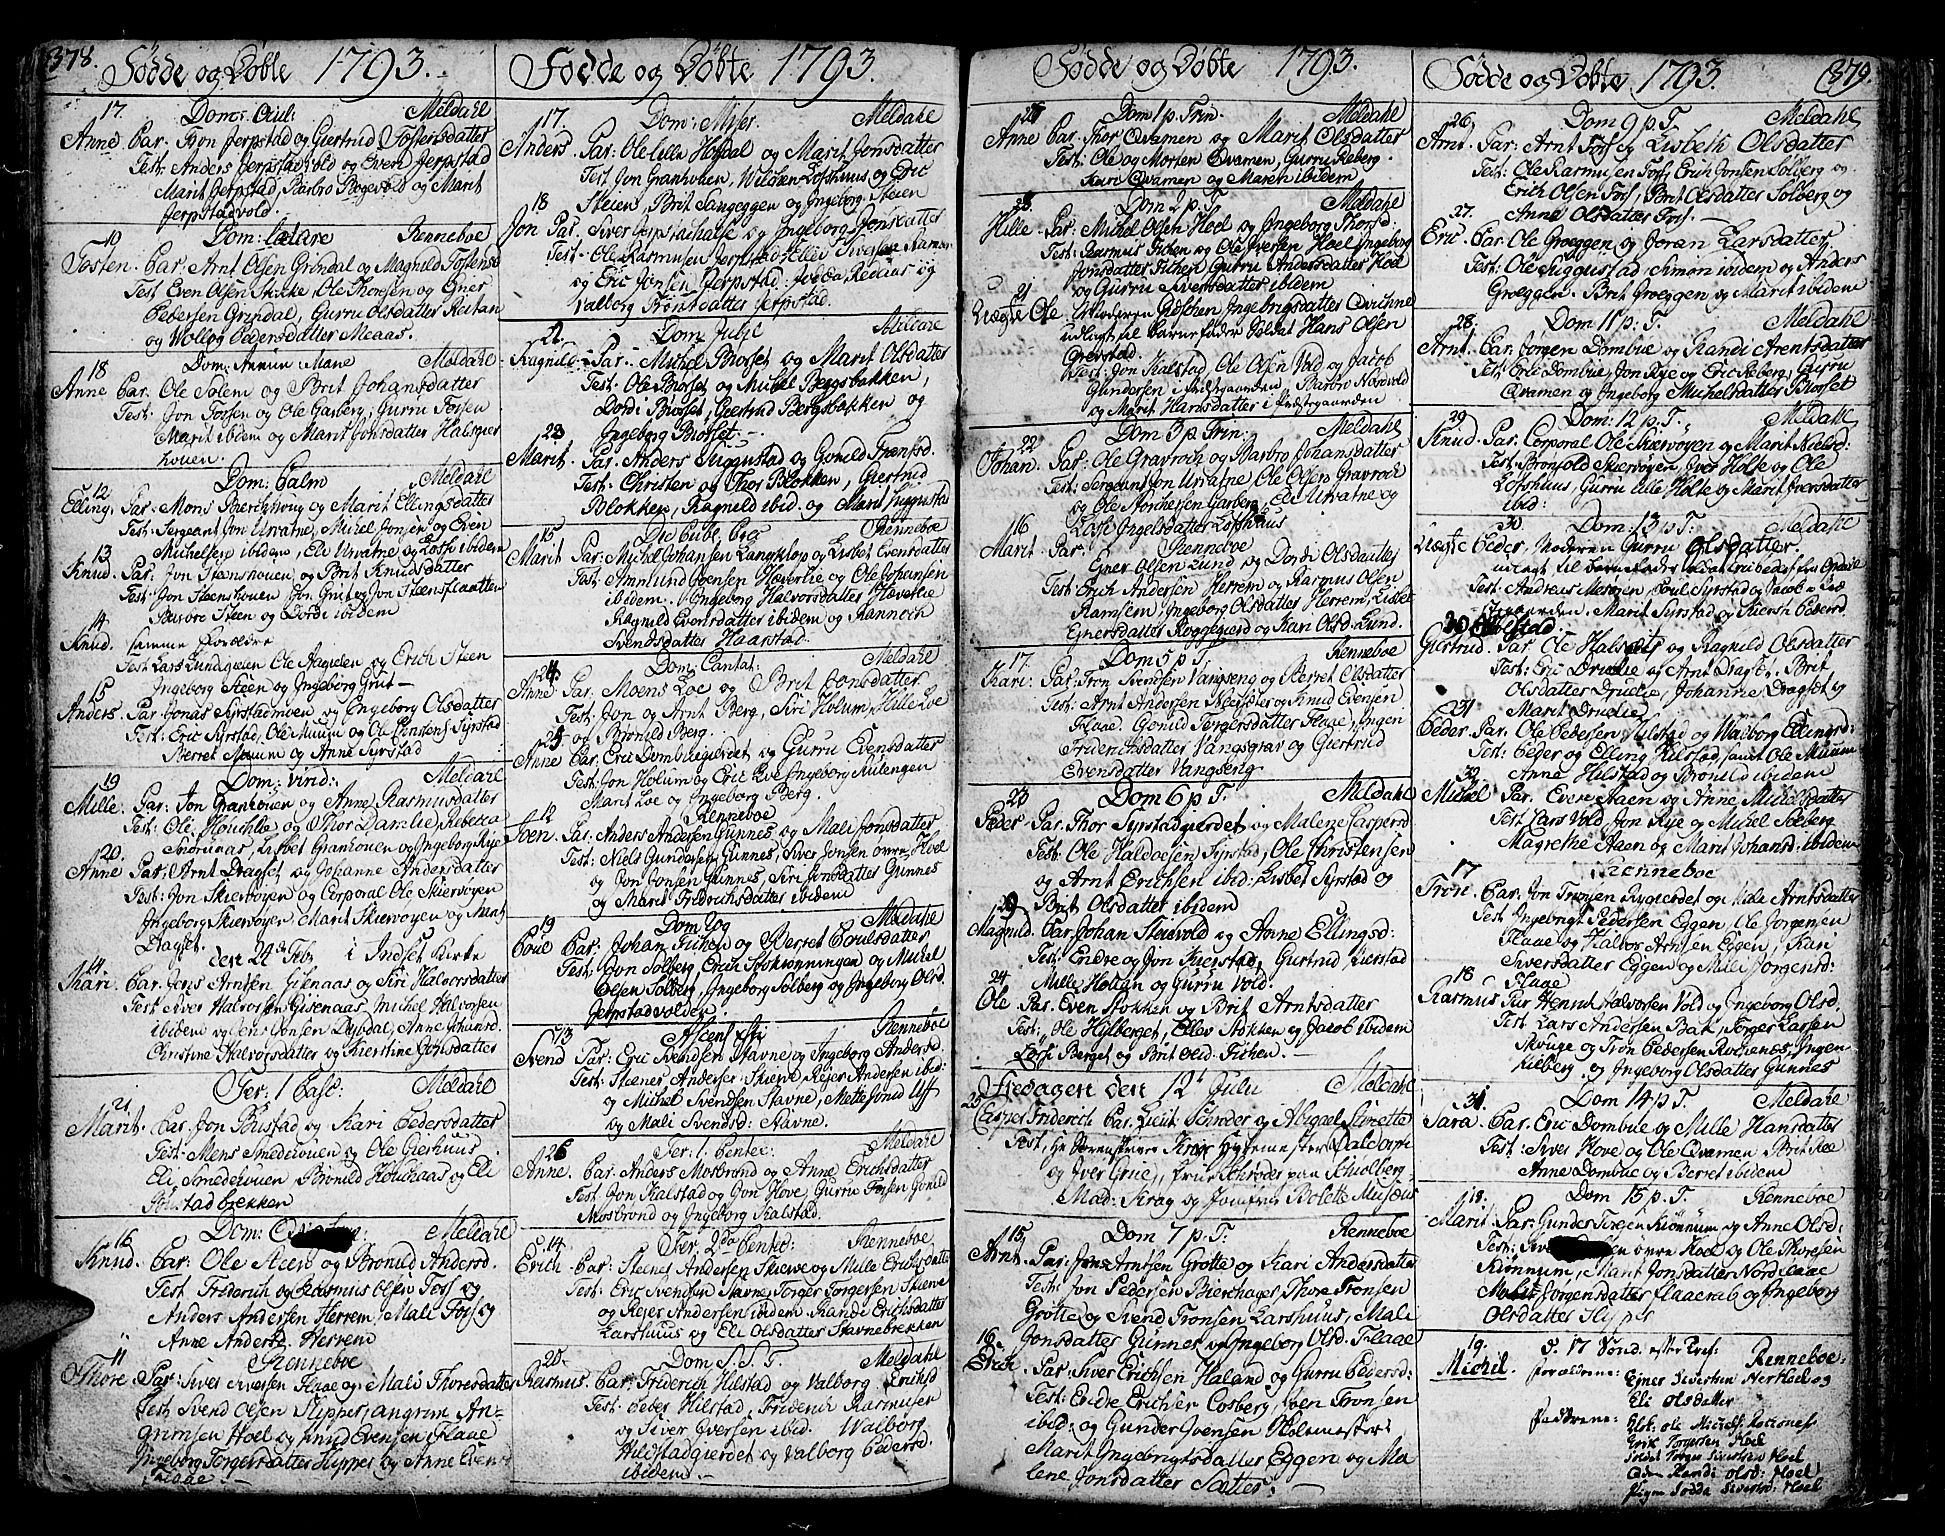 378.
Fødde og Døbte 1793.
17. Dom: Oculi Meldahl
Anne Par: Jon Jerpstad og Giertrud Tostensdatter
Test: Anders Jerpstadvold og Even Jerpstad
Marit Jerpstad, Barbro Rogevold og Marit
Jerpstadvold.
10 Dom: Lætare Renneboe
Tosten. Par: Arnt Olsen Grindal og Magnild Tostensd
Test: Even Olsen Stukke Ole Thoresen og Ener
Pedersen Grindal, Gurru Olsdatter
og Wollog Pedersdatter Meaas.
18 Dom: Annun: Mariæ Meldahl
Anne Par: Ole Solem og Brit Johansdatter
Test: Jon Forsen og Ole Garberg, Gurru Forsen
Marit ibidem og Marit Jonsdatter Halsgier
houen.
Dom: Palm Meldahl
12
Elling. Par: Mons Berchhoug og Marit Ellingsdatter
Test: Sergeant Jon Urvatne, Michel Jonsen og Even
Michelsen ibidem, Eli Urvatne og Lossi ibidem
13
Knud. Par: Jon Steenshouen og Brit Knudsdatter
Test: Jon Steenshouen Jon Grut og Jon Steensplaatten
Barbro Steen og Dordi ibidem
14.
Knud. samme Forældre
Test: Lars Lundgielen Ole Aagielen og Erich Steen
Ingeborg Steen og Ingeborg Grut —
15
Anders. Par: Jonas Syrstadmoen og Ingeborg Olsdatter
Test: Eric Syrstad, Ole Muum og Ole Christens Syrstad
Berret Muum og Anne Syrstad
19 Dom: virid: Meldahl
Mille. Par: Jon Grankouen og Anne Rasmusdatter
Test: Ole og Thor Damlie, Rebecca
Lisbet Grankouen og Ingeborg Rye
20.
Anne Par: Arnt Dragset og Johanne Andersdatter
Test: Jon Skiervøyen og Corporal Ole Skiervøyen
Ingeborg Skiervøyen Marit Skiervøyen og
Dragset.
den 24 Febr i Indset Kirke
14
Kari. Par: Jens Arntsen Gisnaas og Siri Halvorsdatter
Test: Iver Halvorsen Gisenaas, Michel Halvorsen
ibidem og Jens Jonsen Dybdal, Anne
Christine Halvorsdatter og Kierstine Jonsdatter
Fer: 1 Pasc: Meldahl
21
Marit. Par: Jon Bustad og Kari Pedersdatter
Test: Mens Smedehouen og Ole Gierhuus
Eli Smedehouen Brønild og Eli
Justadbrekken
Dom: Meldahl
16
Knud. Par: Ole Aien og Brønild Andersd.
Test Friderich og Rasmus Olsen Fors og
Anders Andersen Herrem, Mali Fors og
Anne Andersd. Herrem
11 Renneboe
Thore. Par: Siver Siversen Flaae og Mali Thoresdatter
Test: Svend Olsen Slipper, An-
grimsen Hoel og Knud Evensen Flaae
Ingeborg Torgersdatter Slipper og Anne Evens
Flaae —
Fødde og Døbte 1793.
17. Dom: Miser: Meldahl
Anders. Par: Ole Lille Hofdal og Marit Jonsdatter
Test Jon Grankouen, Willien Lofshuus og Eric
Steien, Brit Langeggen og Ingeborg Steien
18
Jon Par: Siver Jerpstadhalse og Ingeborg Jonsdatter
Test: Ole Rasmusen Jerpstad
og Eric Jonsen Jerpstad. og
Valborg Jerpstad.
Dom: Jubil: Meldahl
Ragnild — Par: Michel Bhoset og Marit Olsdatter
Test: Ole Bhoset og Michel Bergsbakken,
Dordi Bhoset, Giertrud Bergsbakken og
Ingeborg Bhoset —
23
Marit. Par: Anders Juggustad og Gonild Trondsd.
Test: Christen og Thor Blokken, Giertrud
Blokken, Ragnild ibid. og Marit Juggustad
15 Die Renneboe
Marit Par: Michel Johansen Langklop og Lisbet Evensdatter
Test: Ammund Svensen Hæverlie og Ole Johansen
ibidem. Ingeborg Halvorsdatter Hæverlie
Ragnild Evensdatter ibidem og Rannoch
Svendsdatter Haarstad.
24. Dom: Cantat: Meldahl
Anne Par: Moens Loe og Brit Ponsdatter
Test: Jon og Arnt Berg, Siri Holum, Hille Loe
og Brønild Berg.
25
Anne Par: Eric Dombugierdet og Gurru Evensdatter
Test: Jon Holum og Eric Loe Ingeborg Mulengen
Marit Loe og Ingeborg Berg.
12 Renneboe
Sven. Par: Anders Andersen Gunnes og Mali Jonsdatter
Test: Niels Gundersen Gunnes, Siver Jonsen øvre Hoel
og Jon Jonsen Gunnes Siri Jonsdatter Gunnes
og Marit Fredrichsdatter ibidem
19 Dom: Meldahl
Poul Par: Johan Fichen og Berret Poulsdatter
Test: Jon Solberg, Erich Stokrønningen og Michel
Olsen Solberg, Ingeborg Solberg og Ingeborg Olsd.
Jerpstadvolden.
13 Ascens: Xti Renneboe
Svend Par: Eric Svendsen Stavne — Ingeborg Andersd.
Test: Steener Andersen Skieve Rejer Andersen ibid:
og Michel Svendsen Stavne, Mette Jonsd Uff
og Mali Svendsd: Stavne.
26 Fer: 1 Pentec: Meldahl
Anne. Par: Anders Mosbrønd og Anne Erichsdatter
Test: Jon Kalstad og Jon Hove, Gurru Forsen Gonild
Mosbrønd og Ingeborg Kalstad.
14. Fer. 2da Pentec: Renneboe
Erich. Par: Steener Andersen Skieve og Mille Erichsdatter
Test: Eric Svendsen Stavne Torger Torgersen Skieve
og Rejer Andersen ibidem, Randi Erichsdatter
Larshuus og Eli Olsdatter Stavnebrekken
20. Dom S. S. T. Meldahl
Rasmus. Par: Friderich Hilstad og Valborg Erichsd
Test: Peder Hilstad, Friderich Rasmusen
og Siver Iversen ibid. Valborg
Hilstadgierdet og Valborg Pedersd.
ibidem. —
Fødde og Døbte 1793.
27 Dom 1 p. Trin. Meldahl
Anne Par: Thor Qvamen og Marit Olsdatter
Test: Ole og Morten Qvamen, Gurru Reberg.
Kari Qvamen og Mareth ibidem
28. Dom 2 p. T. Meldahl
Hille. Par: Michel Olsen Hoel og Ingeborg Thorsd.
Test: Rasmus Fichen og Ole Iversen Hoel, Ingeborg
Jonsdatter Fichen, Gurru Andersdatter Hoel
og Gurru Iversdatter ibidem
21
Uægte Ole. Moderen Gjøsken Ingebrigtsdatter Qvithne
udlagt til Barnefader Soldat Hans Olsen
Grevstad.
Test: Jon Kalstad, Ole Olsen Vold og Jacob
Gundersen i Præstegaarden, Barbro Nordvold
og Marit Hansdatter i Præstegaarden
22 Dom 3 p Trin: Meldahl
Johan. Par: Ole Gravroch og Barbro Johansdatter
Test: Sergeant Jon Urvatne Ole Olsen Gravroch
og Ole Monchesen Garberg, Eli Urvatne og
Lossi Ingelsdatter Lofshuus
16 Renneboe
Marit. Par: Ener Olsen Lund og Dordi Olsdatter
Test: Erich Andersen Herrem og Rasmus Olsen
Ramsem, Ingeborg Olsdatter Herrem, Lisbet
Enersdatter Roggegierd og Kari Olsd. Lund.
17. Dom 5 p T, Renneboe
Kari: Par: Tron Svendsen Vangseng og Berret Olsdatter
Test: Arnt Andersen Skieesætter og Knud Evensen
Flaae. Gonild Torgersdatter Flaae, Ingen
Friderichsdatter Vangsgrav og Giertrud
Evensdatter Vangseng.
23 Dom 6 p T. Meldahl
Peder. Par: Thor Syrstadgierdet og Malene Caspersd
Test: Ole Haldosen Syrstad, Ole Christensen
og Arnt Erichsen ibid: Lisbet Syrstad og
Brit Olsdatter ibidem
Magnild. Par: Johan Steivold og Anne Ellingsd:
Test: Endre og Jon Kierstad, Giertrud Kierstad
Mille Holtan og Gurru Vold.
24.
Ole Par: Even Stokken og Brit Arntsdatter
Test: Ole Hilberget, Ellev Stokken og Jacob ibidem
Lossi Berget og Brit Olsd. Fichen. —
Fredagen den 12 Julii Meldahl
25
Casper Friderich Par: Lieut Schrøder og Abigael Ginette
Test, Hr Krog Hyttemester Daldorph
og Iver Grue, Frue Schrøder paa Schiølberg
Mad: Krag og Jomfrue Bolette Musæus
15. Dom 7 p. T. Renneboe
Arnt. Par: Jens Arntsen Grotte og Kari Andersdatter
Test: Jon Pedersen Bierchager Thore Tronsen
Grotte og Svend Tronsen Larshuus, Mali
Jonsdatter Gunnes og Ingeborg Olsd. Flaae
16.
Erich Par: Siver Erichsen Haland og Gurru Pedersd:
Test: Endre Erichsen Cosberg, Sven Tronsen
ibid: og Gunder Svensen Holemester
Marit Ingebrigtsdatter Eggen og Ma
lene Jonsdatter Sætter. —
Fødde og Døbte 1793. 379.
26. Dom 9 p. T. Meldahl
Arnt. Par: Arnt Fors og Lisbeth Olsdatter
Test: Ole Rasmusen Fors, Erich Jonsen Solberg og
Erich Olsen Fors, Brit Olsdatter Solberg og
Anne Olsdatter Fors. —
27.
Eric. Par: Ole Groeggen, og Joran Larsdatter
Test: Ole Suggustad, Simon ibidem og Anders
Groeggen. Brit Groeggen og Marit ibidem
28. Dom 11 p: T. Meldahl
Arnt. Par. Jorgen Dombue og Randi Arentsdatter
Test: Erik Dombue Jon Rye og Eric Reberg, Gurru
Qvamen og Ingeborg Michelsdatter Bhoset
29. Dom: 12 p: T. Meldahl
Knud. Par: Corporal Ole Skiervøyen og Marit Nielsd:
Test: Bronfold Skiervøyen Iver Holte og Ole
Lofshuus, Gurru Lille Holte og Marit Iversdatter
ibid:
30. Dom: 13 p T: Meldahl
Uægte Peder. Moderen Gurru Olsdatter
udlagt til Barnefader
Test: Andreas Mesøyen, Poul Syrstad og Jacob i Præ
stegaarden. Marit Syrstad og Kiersti Pedersd.
Giertrud. Par: Ole Halsæts og Ragnild Olsdatter
Test: Eric Druglie og Arnt Dragset, Brit
Olsdatter Druglie, Johanne Dragset og
Marit Druglie
31
Peder. Par: Ole Pedersen Hilstad og Walborg Ellingsd:
Test: Peder og Elling Hilstad, samt Ole Muum
Anne Hilstad og Brønild ibidem
32.
Michel Par: Evert Aaen og Anne Michelsdatter
Test: Lars Vold, Jon Rye og Michel Solberg
Magrethe Aaen og Marit Johansd: ibidem
17 Renneboe
Tron. Par: Jon Tronsen Rygierdet og Mille Arntsdatter
Test: Ingebrigt Pedersen Eggen, Ole Jorgensen
Flaae og Halvor Arntsen Eggen, Kari
Siversdatter Eggen og Mali Jorgensd:
Flaae
18
Rasmus Par: Henrik Halvorsen Vold og Ingeborg Olsd.
Test: Lars Andersen Bak, Torger Larsen
Skouge og Tron Pedersen, Ingen
Hilberg. og Ingeborg Olsdatter Gunnes
31. Dom 14 p T. Meldahl
Sara. Par: Eric Dombue og Mille Hansdatter
Test: Siver Hove og Ole Qvamen, Brit Roe
Anne Dombue og Berret ibidem
18. Dom 15 p. T. Renneboe
Marit. Par: Gunder Torgersen Krønnum og Anne Olsd:
Test: Siver øvre Hoel og Ole Thoresen
Krønnum, Marit Jonsdatter Nordflaae
Marit Jorgensdatter Flaae og Ingeborg
Olsdatter Slipper
19. D. 17 Sønd. efter Tref: Renneboe.
Michil. Forældrene: Ejner Sivertsen Hoel og
Eli Olsdatter
Fadderne:
Erik Torgersen Hoel
Soldat Torger Sivertsen Hoel
Konen Randi Olsd: Hoel
Pigen Sivertsd: Hoel